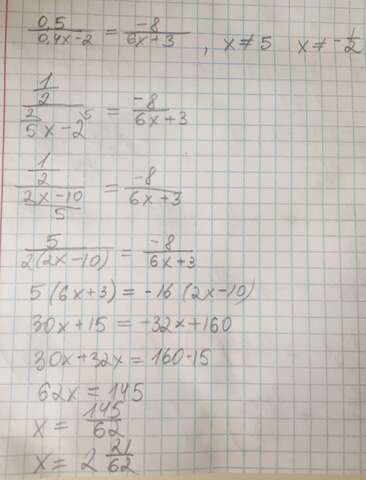 0,5/(0,4x-2) = -8/(6x+3) , x≠5 x≠-1/2
(1/2)/(2/5 x-2^5) = -8/(6x+3)
(1/2)/((2x-10)/5) = -8/(6x+3)
5/(2(2x-10)) = -8/(6x+3)
5(6x+3) = -16(2x-10)
30x+15 = -32x+160
30x+32x = 160-15
62x = 145
x = 145/62
x = 2 21/62